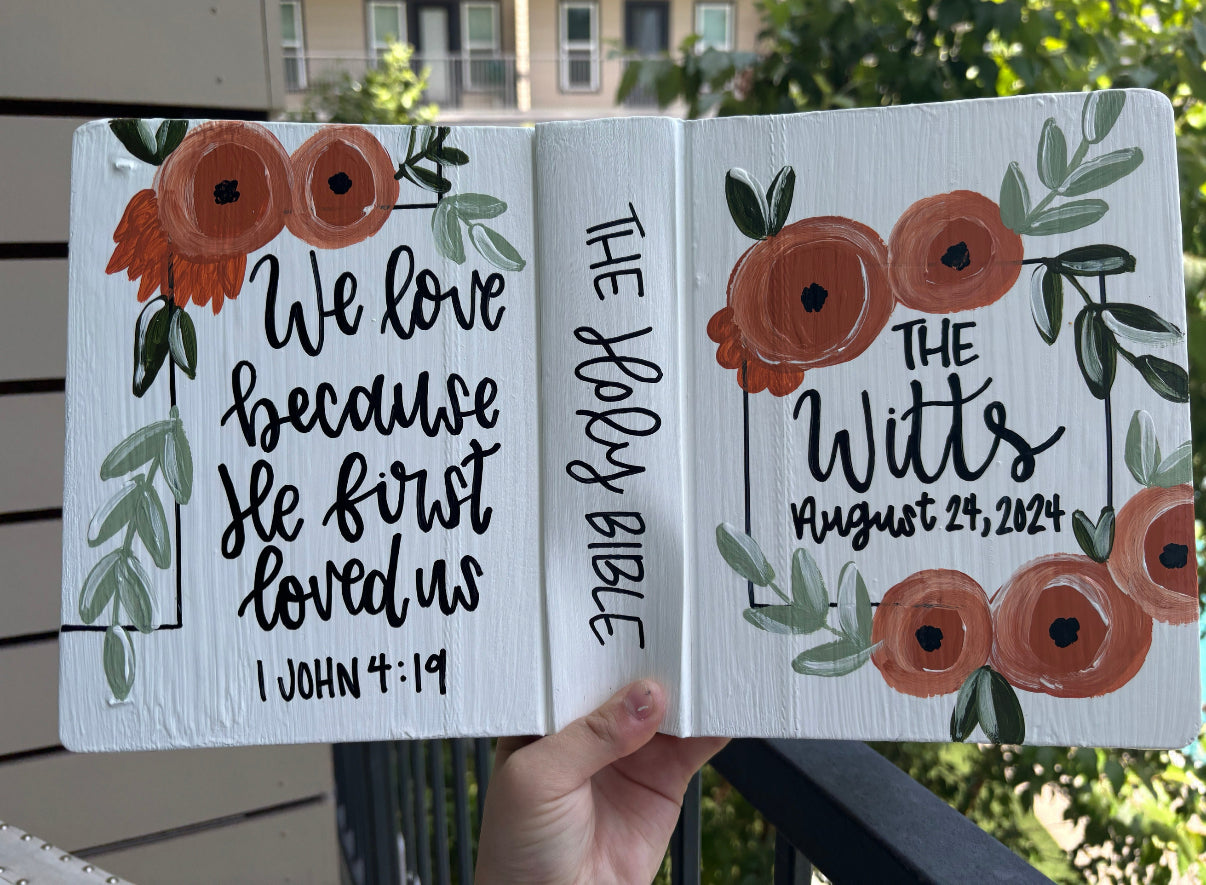 We love
because
He first
loved us
1 JOHN 4:19
THE Holy BIBLE
THE
Witts
August 24, 2024